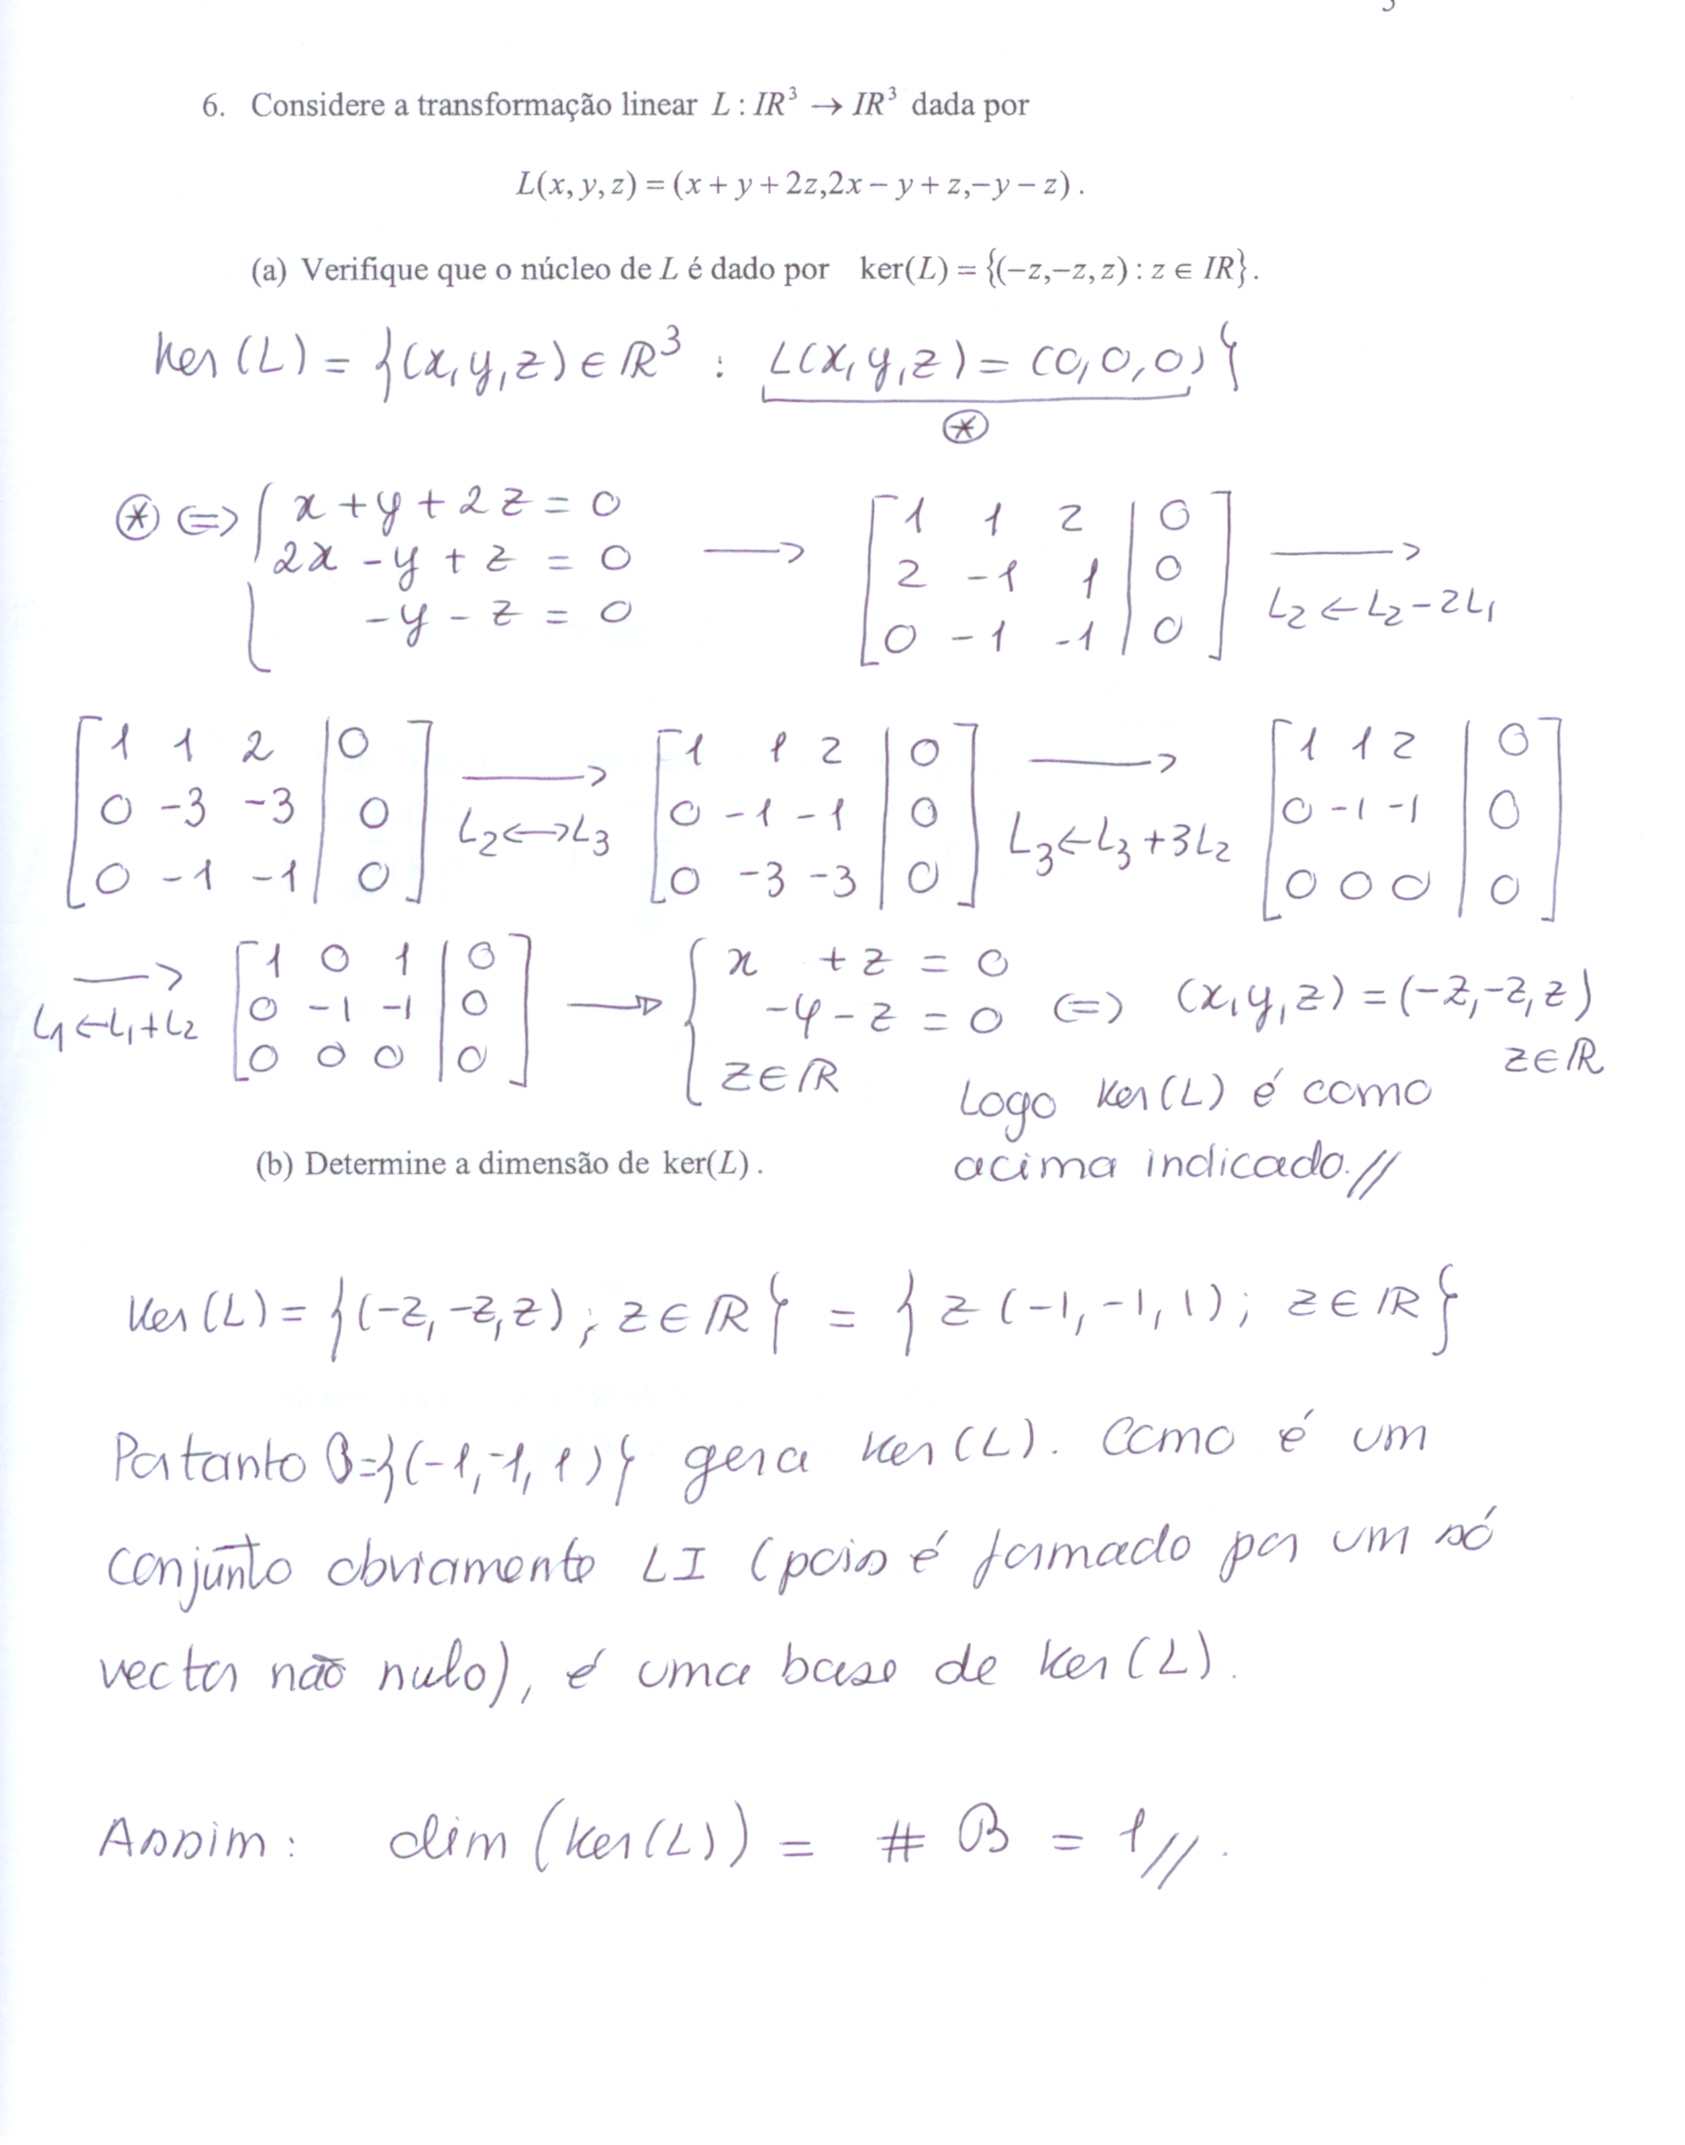 6. Considere a transformação linear L : IR³ → IR³ dada por
L(x, y, z) = (x + y + 2z,2x − y + z,−y − z) .
(a) Verifique que o núcleo de L é dado por ker(L) = {(−z,−z, z) : z ∈ IR}.
Ker (L) = {(x,y,z) ∈ ℝ³ : L(x,y,z) = (0,0,0)}
⊛
⊛ ⟺ { x + y + 2z = 0 ⟶ [1 1 2 | 0]
2x − y + z = 0 [2 −1 1 | 0] ⟶
−y − z = 0 [0 −1 −1 | 0] L₂ ← L₂ − 2L₁
[1 1 2 | 0] ⟶ [1 1 2 | 0] ⟶ [1 1 2 | 0]
[0 −3 −3 | 0] L₂ ⟷ L₃ [0 −1 −1 | 0] L₃ ← L₃ + 3L₂ [0 −1 −1 | 0]
[0 −1 −1 | 0] [0 −3 −3 | 0] [0 0 0 | 0]
⟶ [1 0 1 | 0] { x + z = 0
L₁ ← L₁ + L₂ [0 −1 −1 | 0] ⟶ −y − z = 0 ⟺ (x,y,z) = (−z,−z,z)
[0 0 0 | 0] z ∈ ℝ z ∈ ℝ
Logo Ker(L) é como
acima indicado.//
(b) Determine a dimensão de ker(L) .
Ker (L) = {(−z, −z, z) ; z ∈ ℝ} = {z (−1, −1, 1) ; z ∈ ℝ}
Portanto B={(−1,−1, 1)} gera Ker (L). Como é um
conjunto obviamente LI (pois é formado por um só
vector não nulo), é uma base de Ker (L).
Assim : dim (Ker(L)) = # B = 1 // .